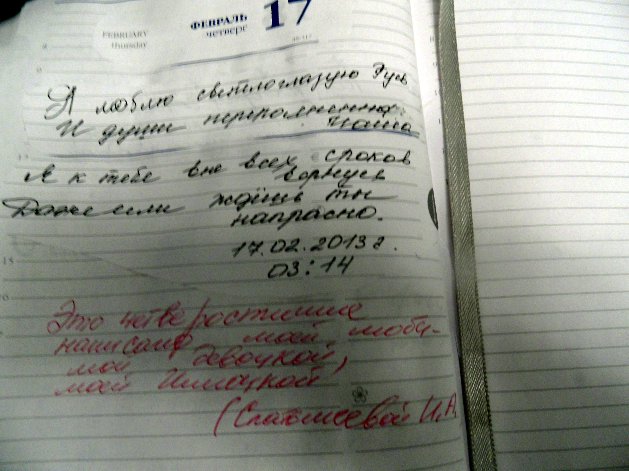 FEBRUARY
thursday
ФЕВРАЛЬ
четверг
17
Я люблю светлоглазую Русь
И души переполненной
Я к тебе вне всех сроков
вернусь
Даже если ждёшь ты
напрасно.
17.02.2013 г.
03:14
15
Это четверостишие
написано моей люби-
мой девочкой,
моей
И.А.